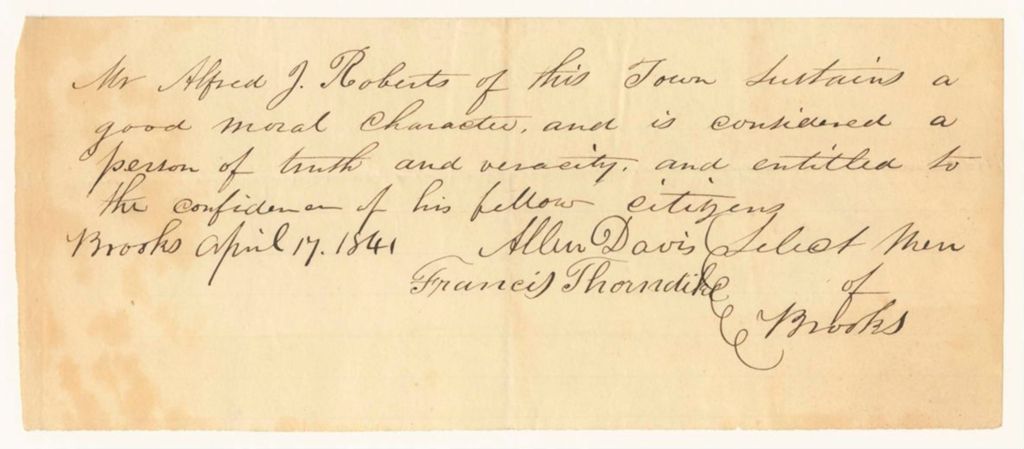 Mr Alfred J. Roberts of this Town sustains a
good moral character, and is considered a
person of truth and veracity, and entitled to
the confidence of his fellow citizens
Brooks April 17. 1841 Allen Davis Select Men
Francis Thorndike of
Brooks